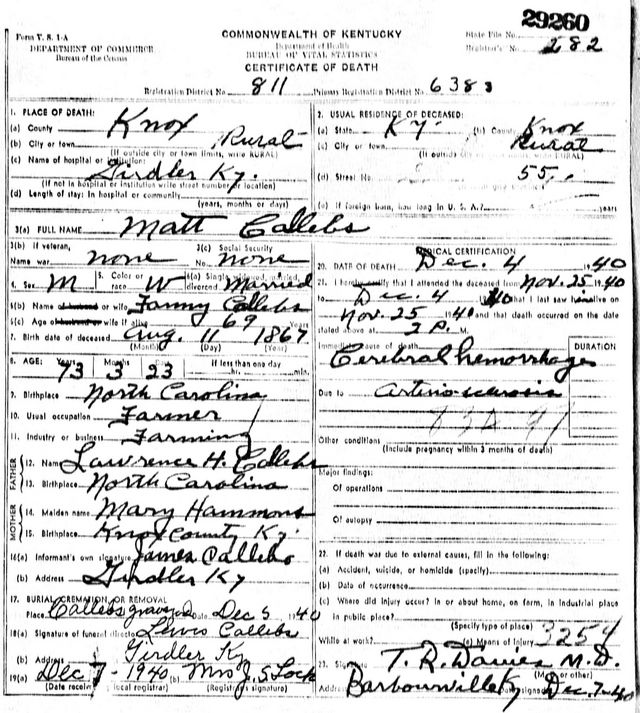 29260
Form V. S. 1-A
DEPARTMENT OF COMMERCE
Bureau of the Census
COMMONWEALTH OF KENTUCKY
Department of Health
BUREAU OF VITAL STATISTICS
CERTIFICATE OF DEATH
State File No.
Registrar's No. 282
Registration District No. 811 Primary Registration District No. 6383
1. PLACE OF DEATH:
(a) County Knox
(b) City or town Rural
(If outside city or town limits, write RURAL)
(c) Name of hospital or institution:
Girdler Ky.
(If not in hospital or institution write street number or location)
(d) Length of stay: In hospital or community
(years, months or days)
2. USUAL RESIDENCE OF DECEASED:
(a) State Ky. (b) County Knox
(c) City or town Rural
(If outside city or town limits, write RURAL)
(d) Street No. 55
(e) If foreign born, how long in U. S. A.? years
3(a) FULL NAME Matt Callebs
3(b) If veteran, 3(c) Social Security
Name war none No. none
4. Sex M 5. Color or race W 6(a) Single, widowed, married, divorced Married
6(b) Name of husband or wife Fanny Callebs
6(c) Age of husband or wife if alive 69 Years
7. Birth date of deceased Aug. 11 1867
(Month) (Day) (Year)
8. AGE: Years Months Days If less than one day
73 3 23 hr. min.
9. Birthplace North Carolina
10. Usual occupation Farmer
11. Industry or business Farming
FATHER
12. Name Lawrence H. Callebs
13. Birthplace North Carolina
MOTHER
14. Maiden name Mary Hammons
15. Birthplace Knox County Ky.
16(a) Informant's own signature James Callebs
(b) Address Girdler Ky
17. BURIAL, CREMATION, OR REMOVAL
Place Callebs graveyard Date Dec 5 1940
18(a) Signature of funeral director Lewis Callebs
(b) Address Girdler Ky
19(a) Dec 7-1940 (b) Mrs J. S. Lock
(Date received local registrar) (Registrar's signature)
MEDICAL CERTIFICATION
20. DATE OF DEATH Dec. 4 1940
21. I hereby certify that I attended the deceased from Nov. 25 1940
to Dec. 4 1940 that I last saw him alive on
Nov. 25 1940 and that death occurred on the date
stated above at 2 P. M.
DURATION
Immediate cause of death
Cerebral hemorrhage
Due to arterio-sclerosis
Other conditions
(Include pregnancy within 3 months of death)
Major findings:
Of operations
Of autopsy
22. If death was due to external causes, fill in the following:
(a) Accident, suicide, or homicide (specify)
(b) Date of occurrence
(c) Where did injury occur? In or about home, on farm, in industrial place
in public place?
(Specify type of place)
While at work? (e) Means of injury 3254
23. Signature T. R. Davies M.D.
(M.D. or other)
Address Barbourville Ky Dec. 7-40